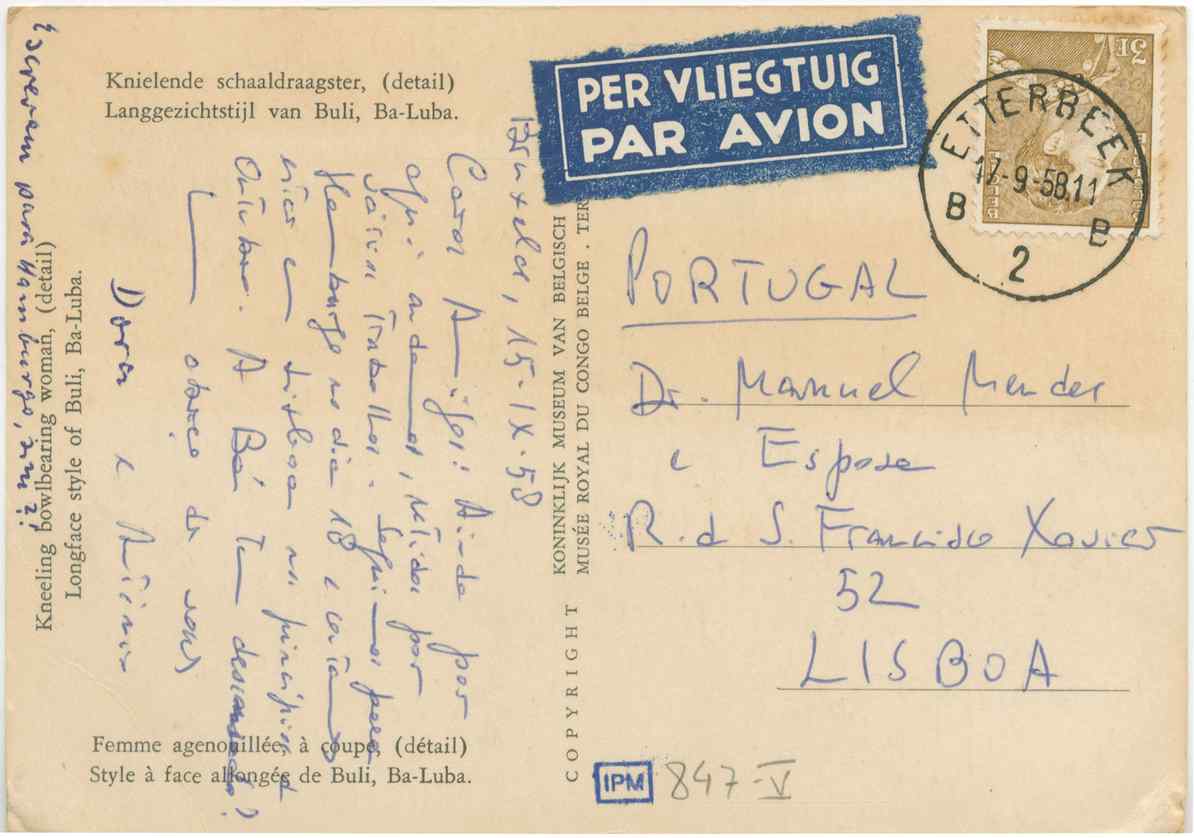 Knielende schaaldraagster, (detail)
Langgezichtstijl van Buli, Ba-Luba.
Kneeling bowlbearing woman, (detail)
Longface style of Buli, Ba-Luba.
Femme agenouillée, à coupe, (détail)
Style à face allongée de Buli, Ba-Luba.
Bruxelas, 15-IX-58
Caros Amigos: Ainda por
aqui andamos, retidos por
vários trabalhos. Seguimos para
Hamburgo no dia 18 e contamos
estar em Lisboa no princípio de
Outubro. A Bá tem descansado?
Um abraço de vosso
Dora e
Escrevam para Hamburgo, sim?!
COPYRIGHT
KONINKLIJK MUSEUM VAN BELGISCH
MUSÉE ROYAL DU CONGO BELGE . TER
PER VLIEGTUIG
PAR AVION
3F
ETTERBEEK
17-9-58.11
B B
2
PORTUGAL
Dr. Manuel Mendes
e Esposa
R. de S. Francisco Xavier
52
LISBOA
IPM
847-V